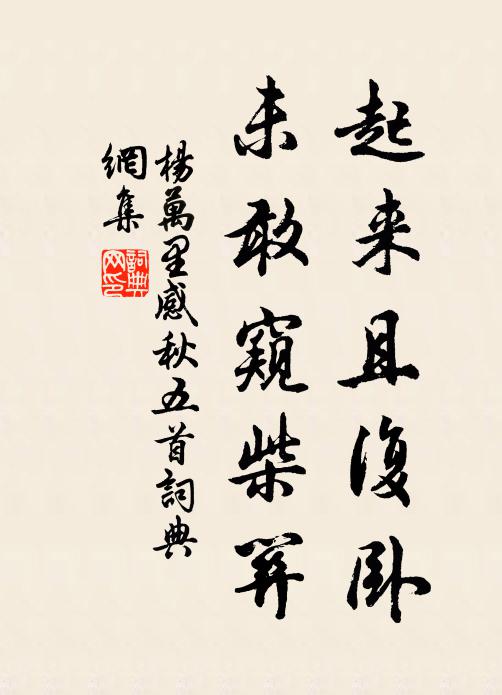 起来且復卧
未敢窺柴荆
楊萬里感秋五首詞典
網集
詞典网印